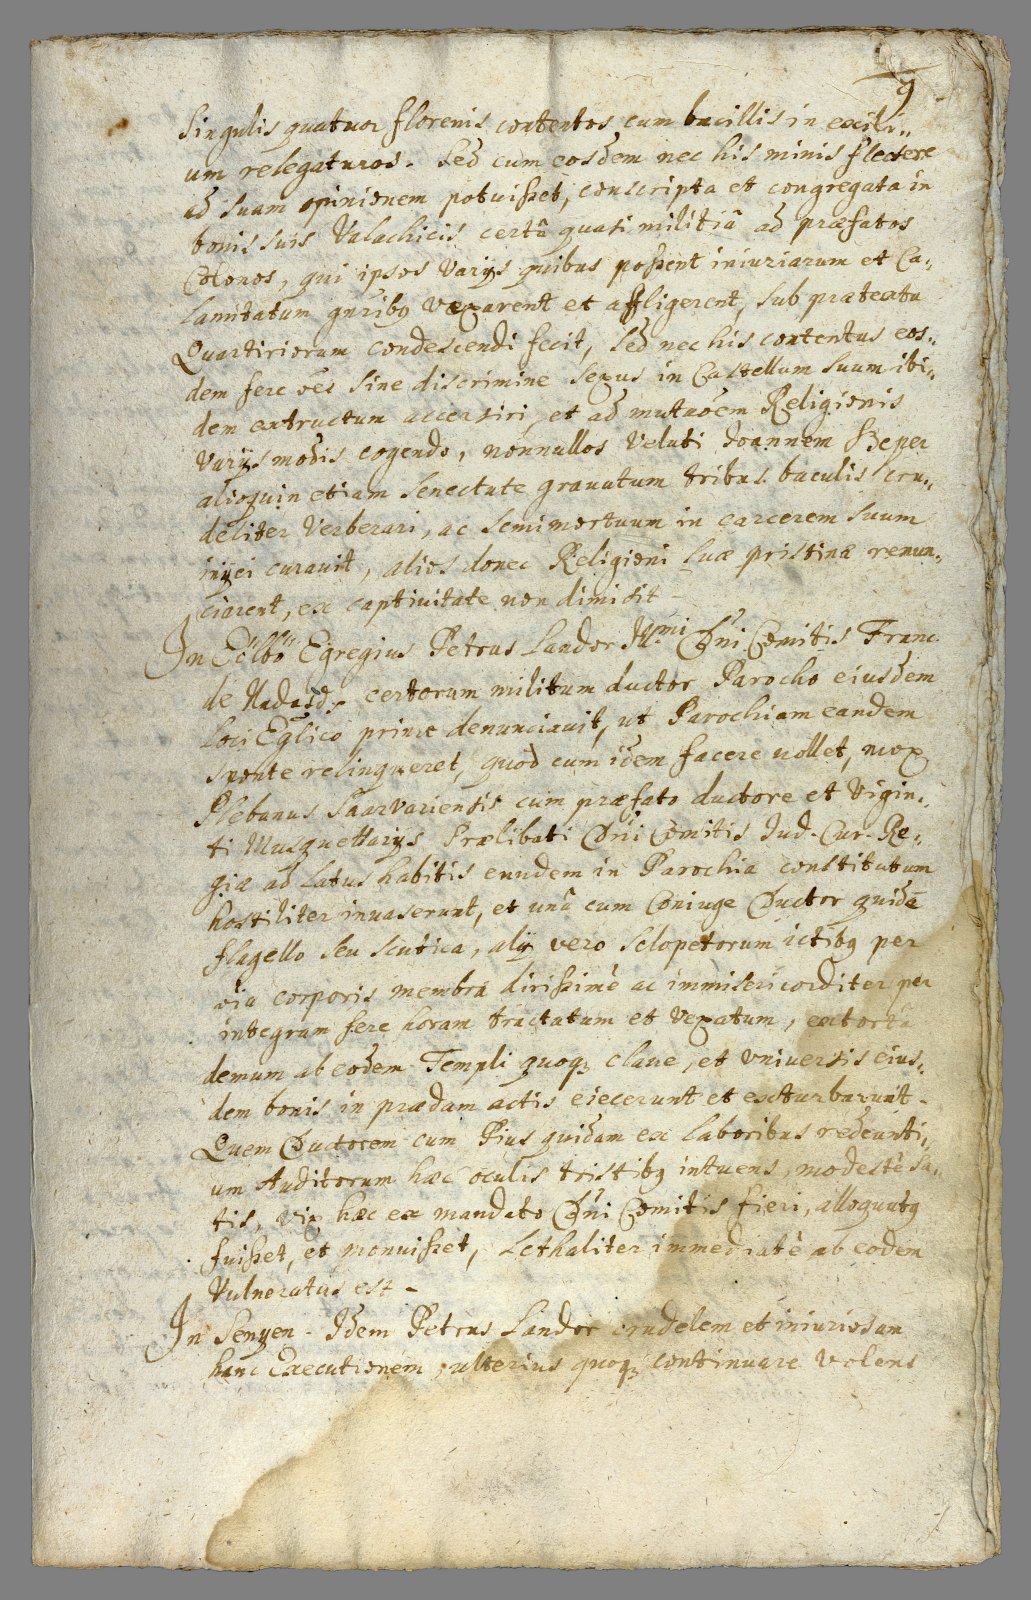 9
singulis quatuor florenis contentos cum bacillis in exili„
um relegaturos. Sed cum eosdem nec his minis flectere
ad suam opinionem potuisset, conscripta et congregata in
bonis suis Valachicis certâ quasi militiâ ad præfatos
Colonos, qui ipsos varijs quibus possent iniuriarum et Ca„
lamitatum gnribq vexarent et affligerent, sub prætextu
Quartiriorum condescendi fecit, sed nec his contentus eos„
dem fere oes sine discrimine sexus in Castellum suum ibi„
dem extructum accersiri, et ad mutaõem Religionis
varijs modis cogendo, nonnullos veluti Joannem Szeper
alioquin etiam senectute grauatum tribus baculis cru„
deliter verberari, ac semimortuum in carcerem suum
inijci curauit, alios donec Religioni suæ pristinæ renun„
ciarent, ex captiuitate non dimisit
In Eölbö Egregius Petrus Landor Illmi Dni Comitis Franc
de Nadasd, certorum militum ductor Parocho eiusdem
loci Eglico prius denunciauit, ut Parochiam eandem
sponte relinqueret, quod cum idem facere nollet, mox
Plebanus Saarvariensis cum præfato ductore et vigin„
ti Musquettarijs Prælibati Dni Comitis Jud. Cur. Re„
giæ ad latus habitis eundem in Parochia constitutum
hostiliter inuaserunt, et unâ cum Coniuge Ductor quidẽ
flagello seu scutica, alij vero sclopetorum ictibq per
oia corporis membra dirissimè ac immisericorditer per
integram fere horam tractatum et vexatum, extorta
demum ab eodem Templi quoqȝ claue, et vniuersis eius„
dem bonis in prædam actis eiecerunt et exturbarunt.
Quem Ductorem cum Pius quidam ex laboribus redeunti„
um Auditorum hæc oculis tristibq intuens, modestè sa„
tis, vix hæc ex mandato Dni Comitis fieri, alloquutq
fuisset, et monuisset, lethaliter immediatè ab eodem
Vulneratus est
In Senyen. Idem Petrus Landor crudelem et iniuriosam
hanc Executionem, ulterius quoqȝ continuare volens